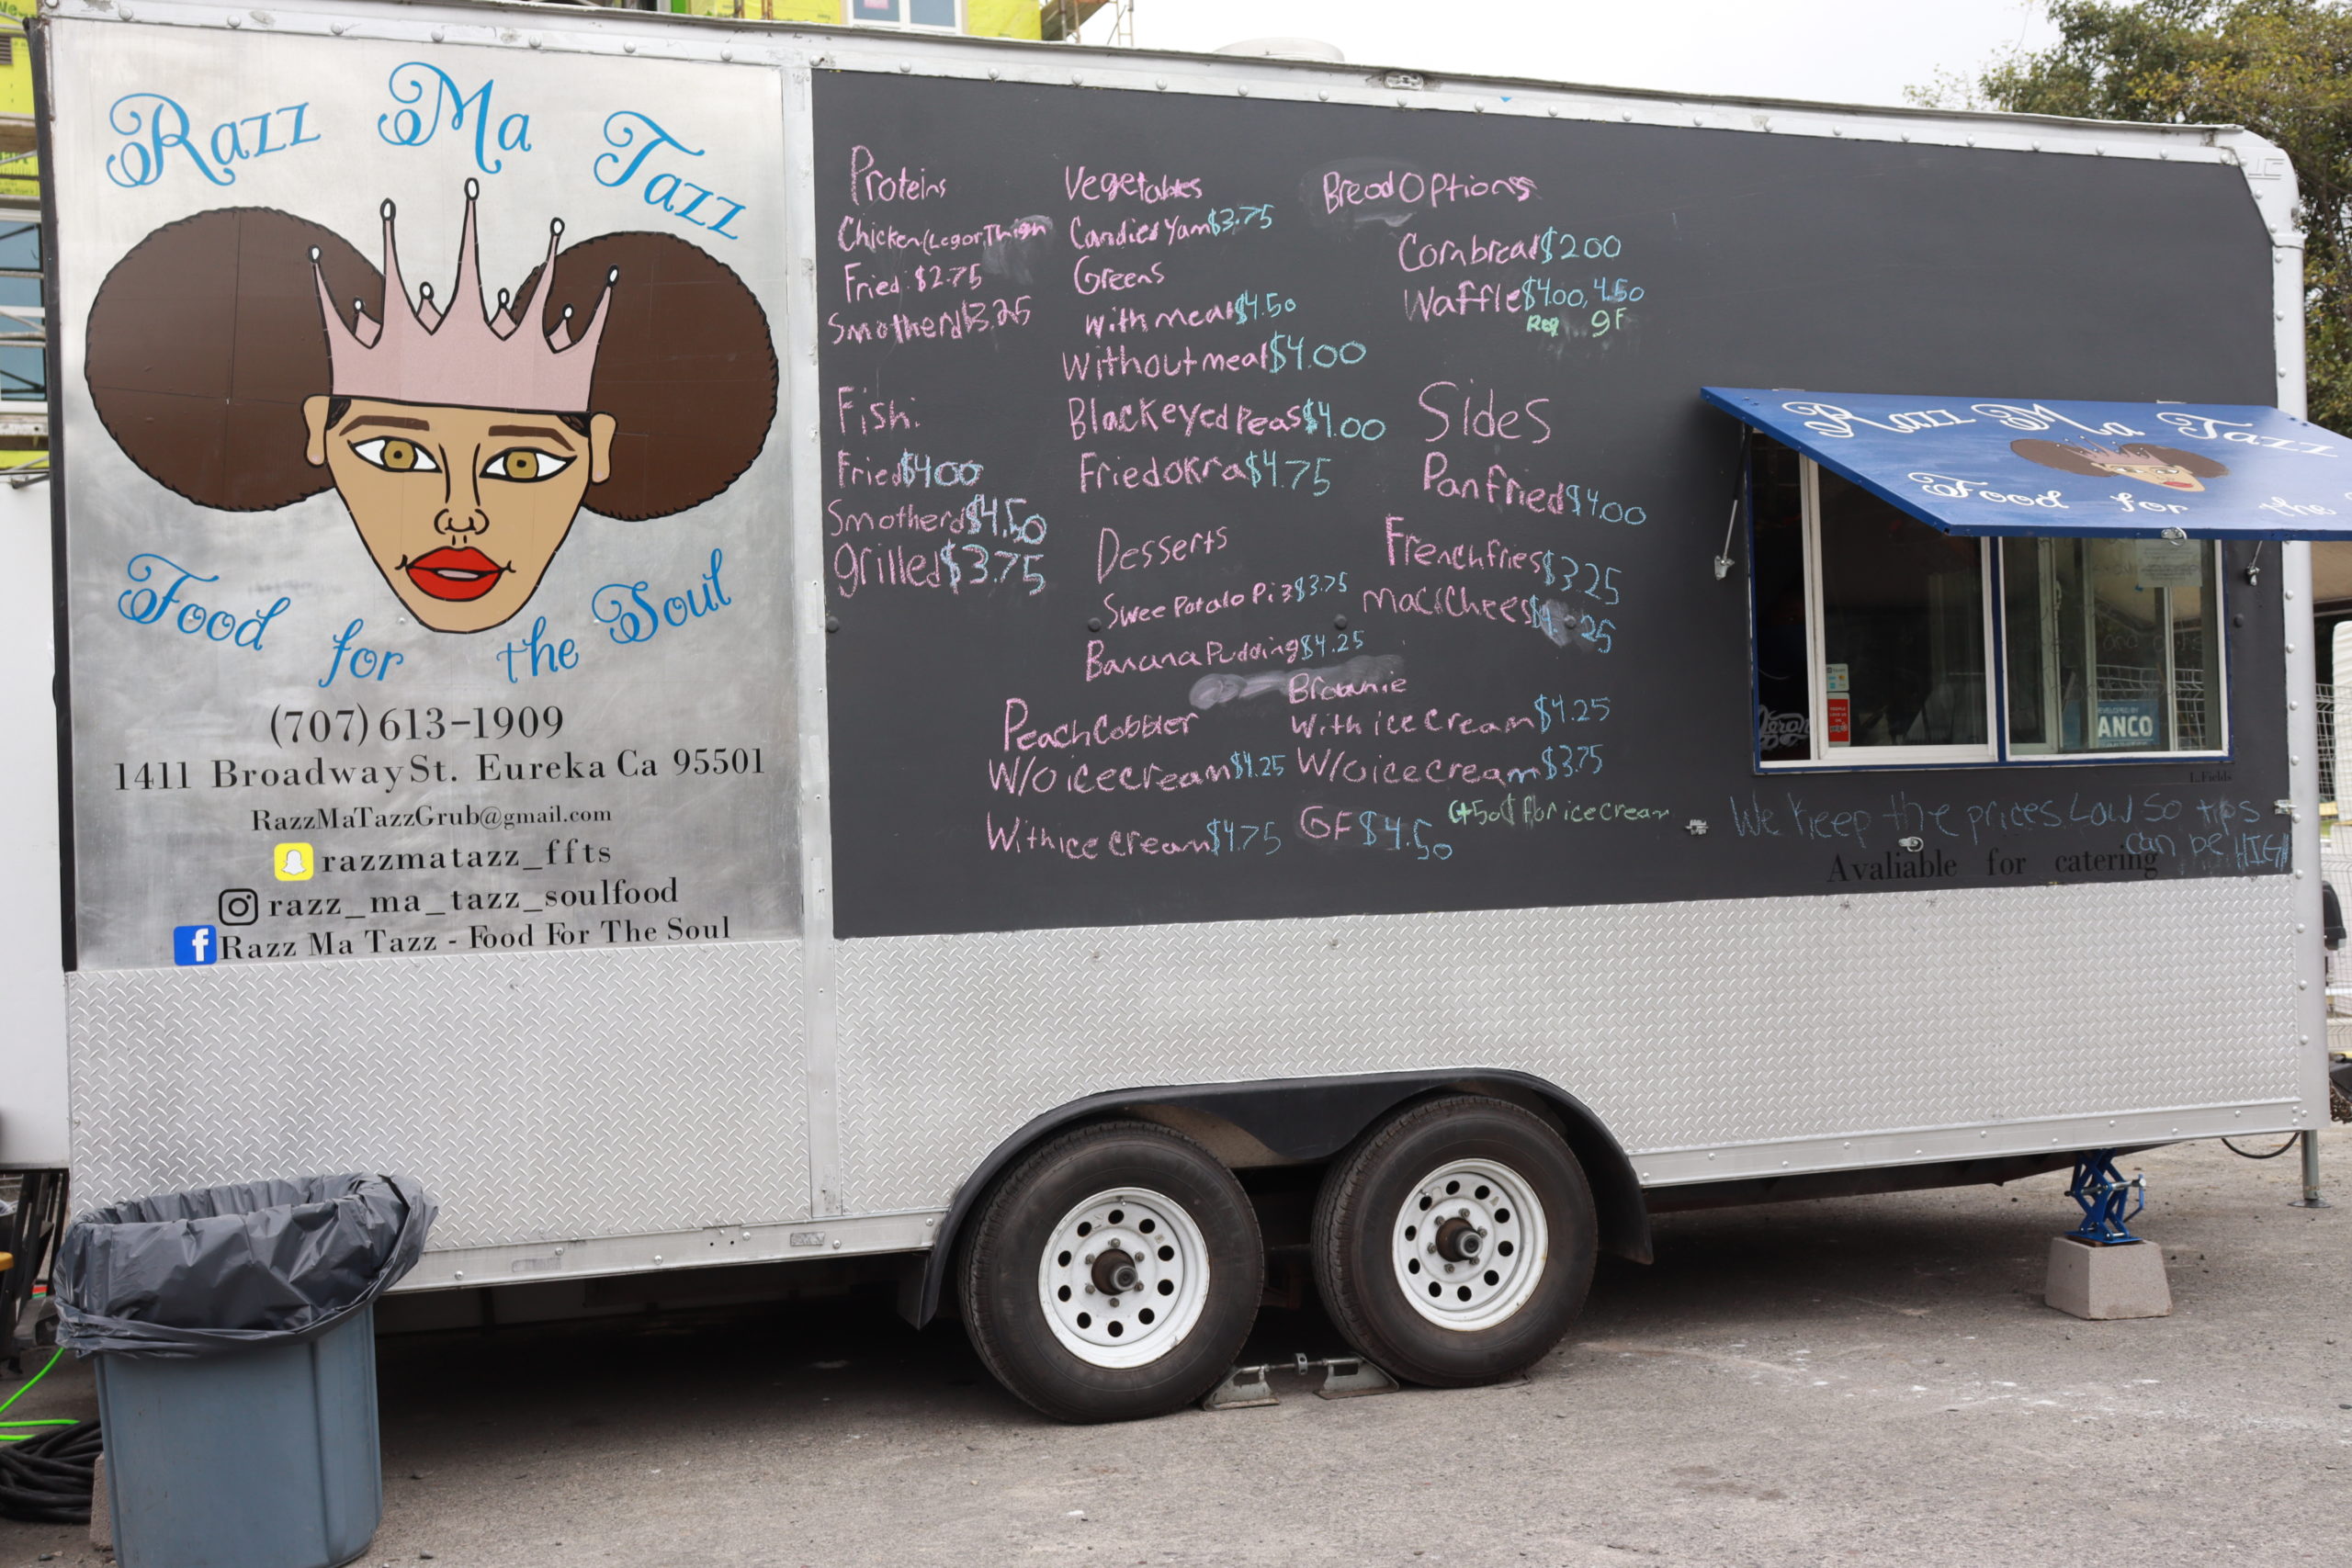 Razz Ma Tazz
Food for the Soul
(707) 613-1909
1411 Broadway St. Eureka Ca 95501
RazzMaTazzGrub@gmail.com
razzmatazz_ffts
razz_ma_tazz_soulfood
f Razz Ma Tazz - Food For The Soul
Proteins
Chicken (Leg or Thigh
Fried: $2.75
Smotherd $3.25
Fish:
Fried $4.00
Smotherd $4.50
grilled $3.75
Vegetables
Candied Yam $3.75
Greens
with meat $4.50
Without meat $4.00
Black eyed Peas $4.00
Fried okra $4.75
Desserts
Swee Potato Pie $3.75
Banana Pudding $4.25
Peach Cobbler
W/o ice cream $4.25
With ice cream $4.75
Brownie
With ice Cream $4.25
W/o ice cream $3.75
GF $4.50
for ice cream
Bread Options
Cornbread $2.00
Waffle $4.00, 4.50
Reg GF
Sides
Pan fried $4.00
French fries $3.25
mac & Chees 25
Razz Ma Tazz
Food for the
ANCO
L. Fields
We Keep the prices Low So tips
can be HIGH
Avaliable for catering